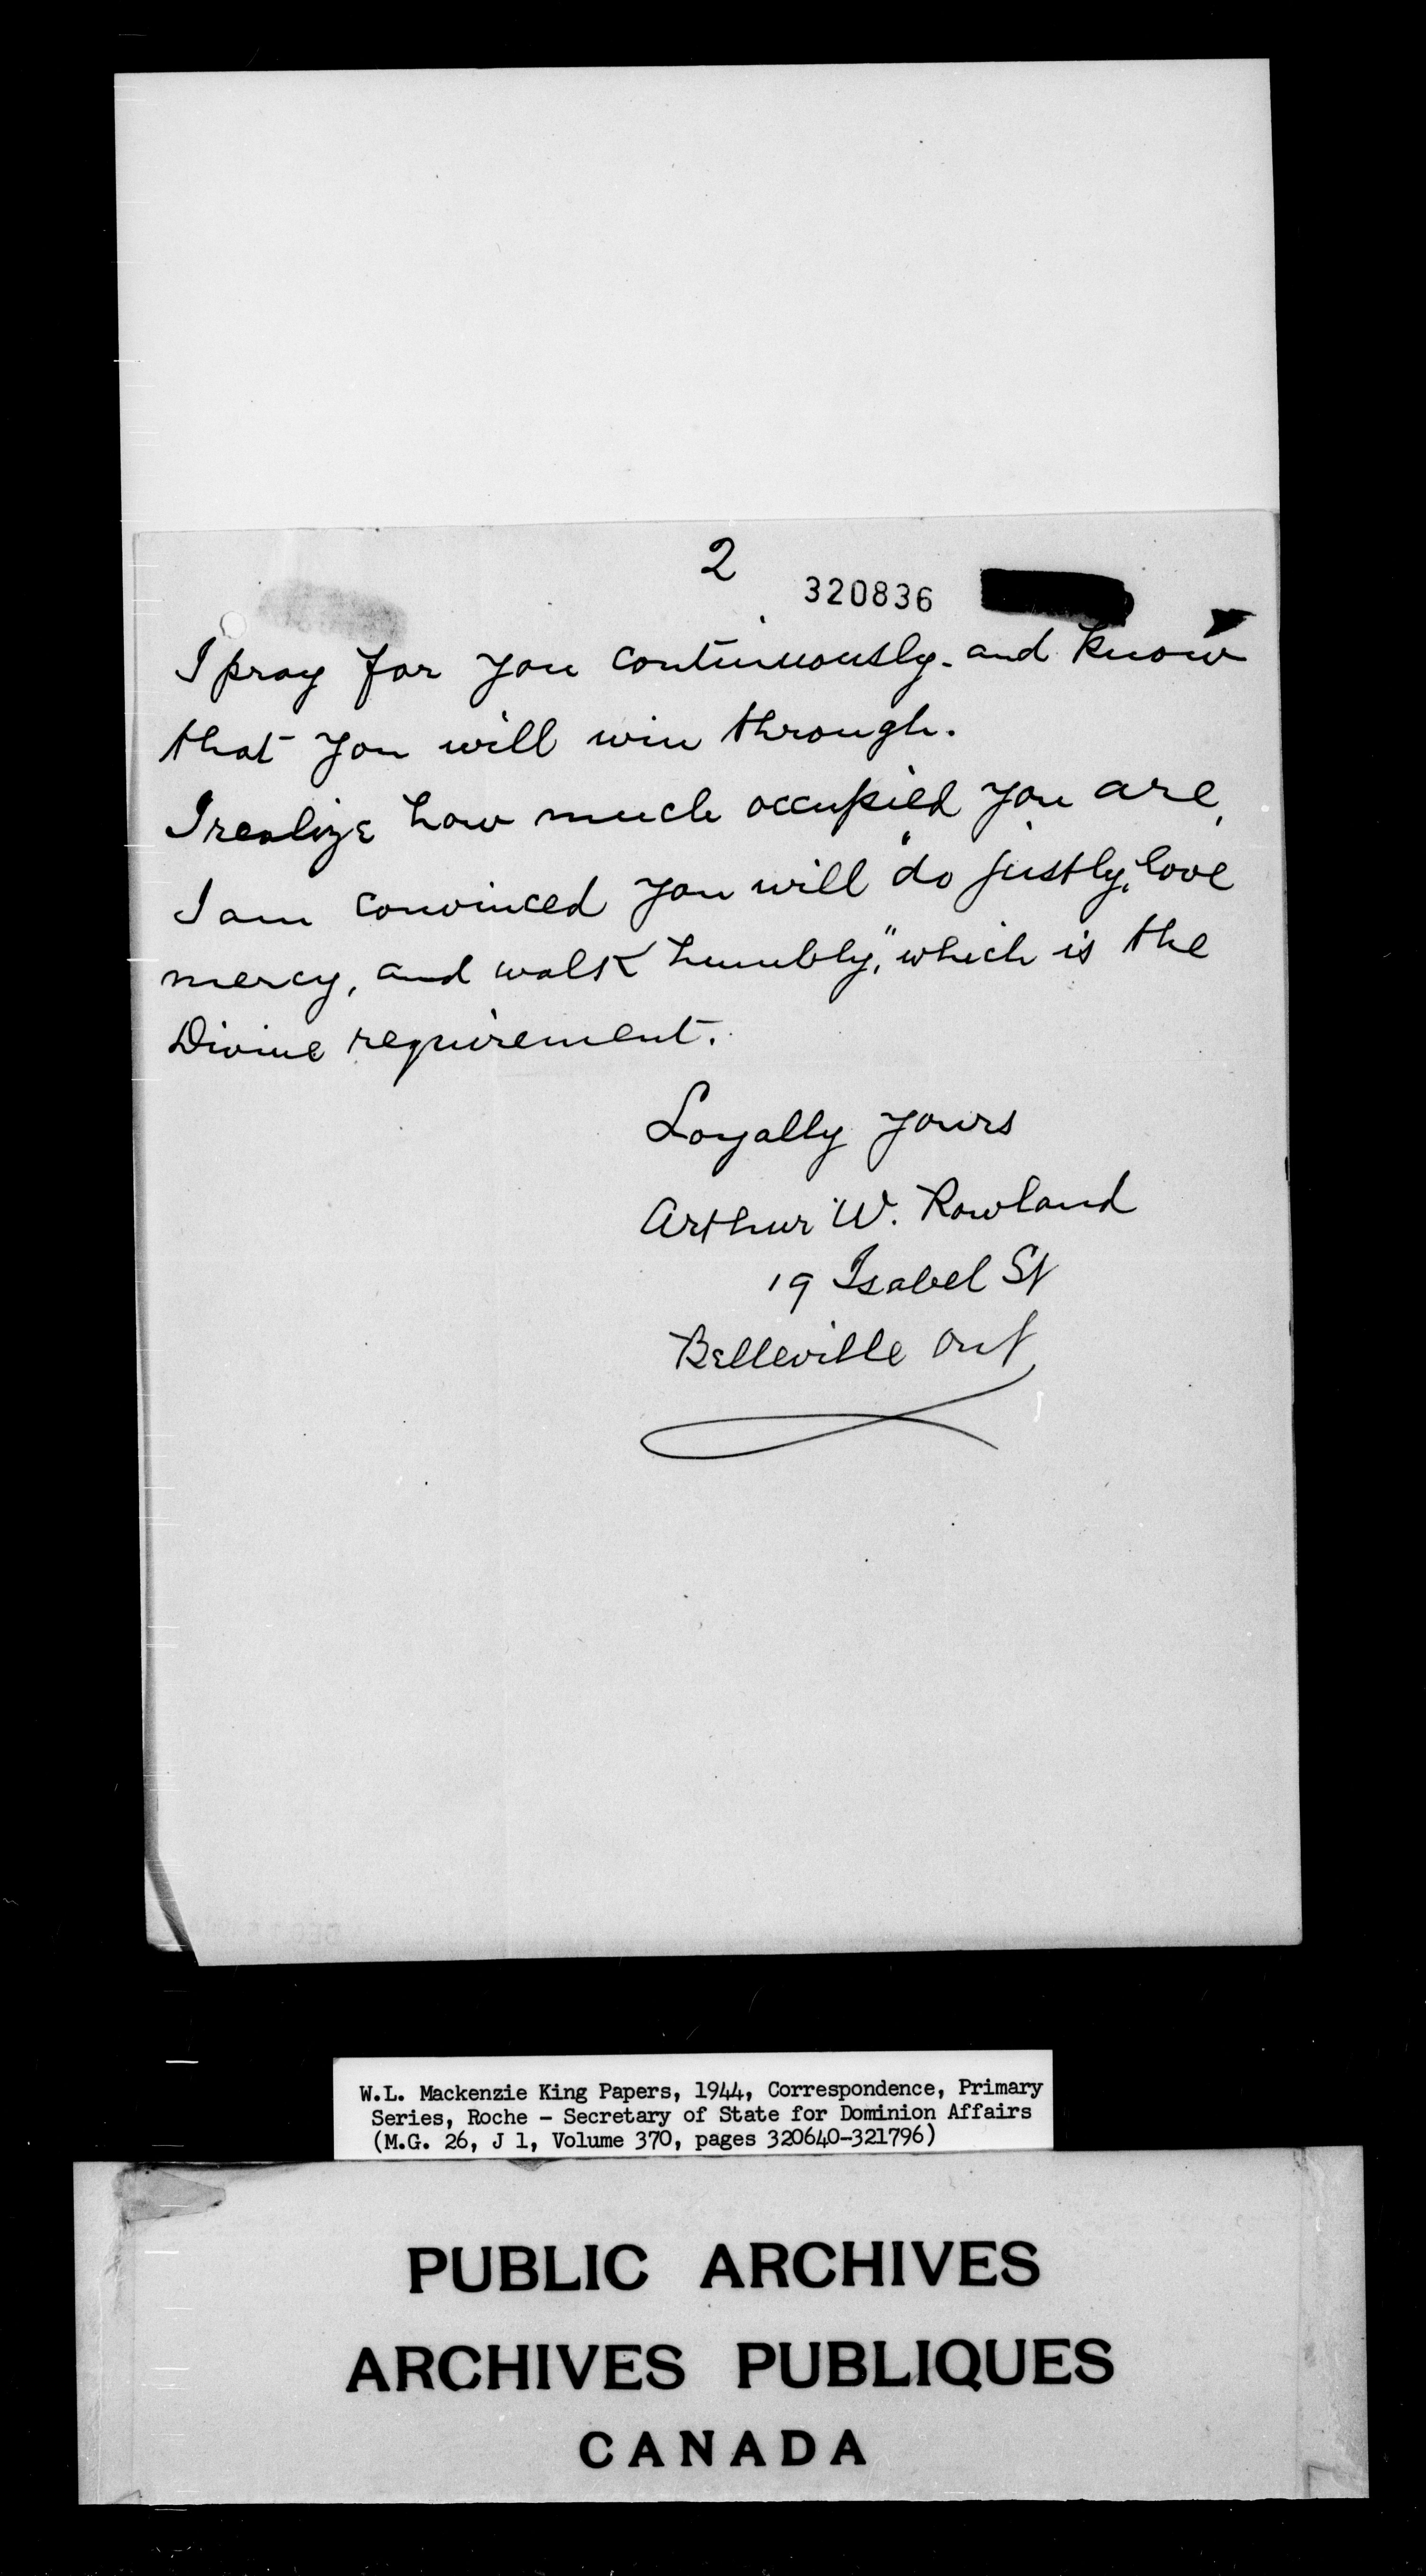 2
320836
I pray for you continuously - and know
that you will win through.
I realize how much occupied you are,
I am convinced you will "do justly, love
mercy, and walk humbly," which is the
Divine requirement.
Loyally yours
Arthur W. Rowland
19 Isabel St
Belleville Ont
W.L. Mackenzie King Papers, 1944, Correspondence, Primary
Series, Roche - Secretary of State for Dominion Affairs
(M.G. 26, J 1, Volume 370, pages 320640-321796)
PUBLIC ARCHIVES
ARCHIVES PUBLIQUES
CANADA